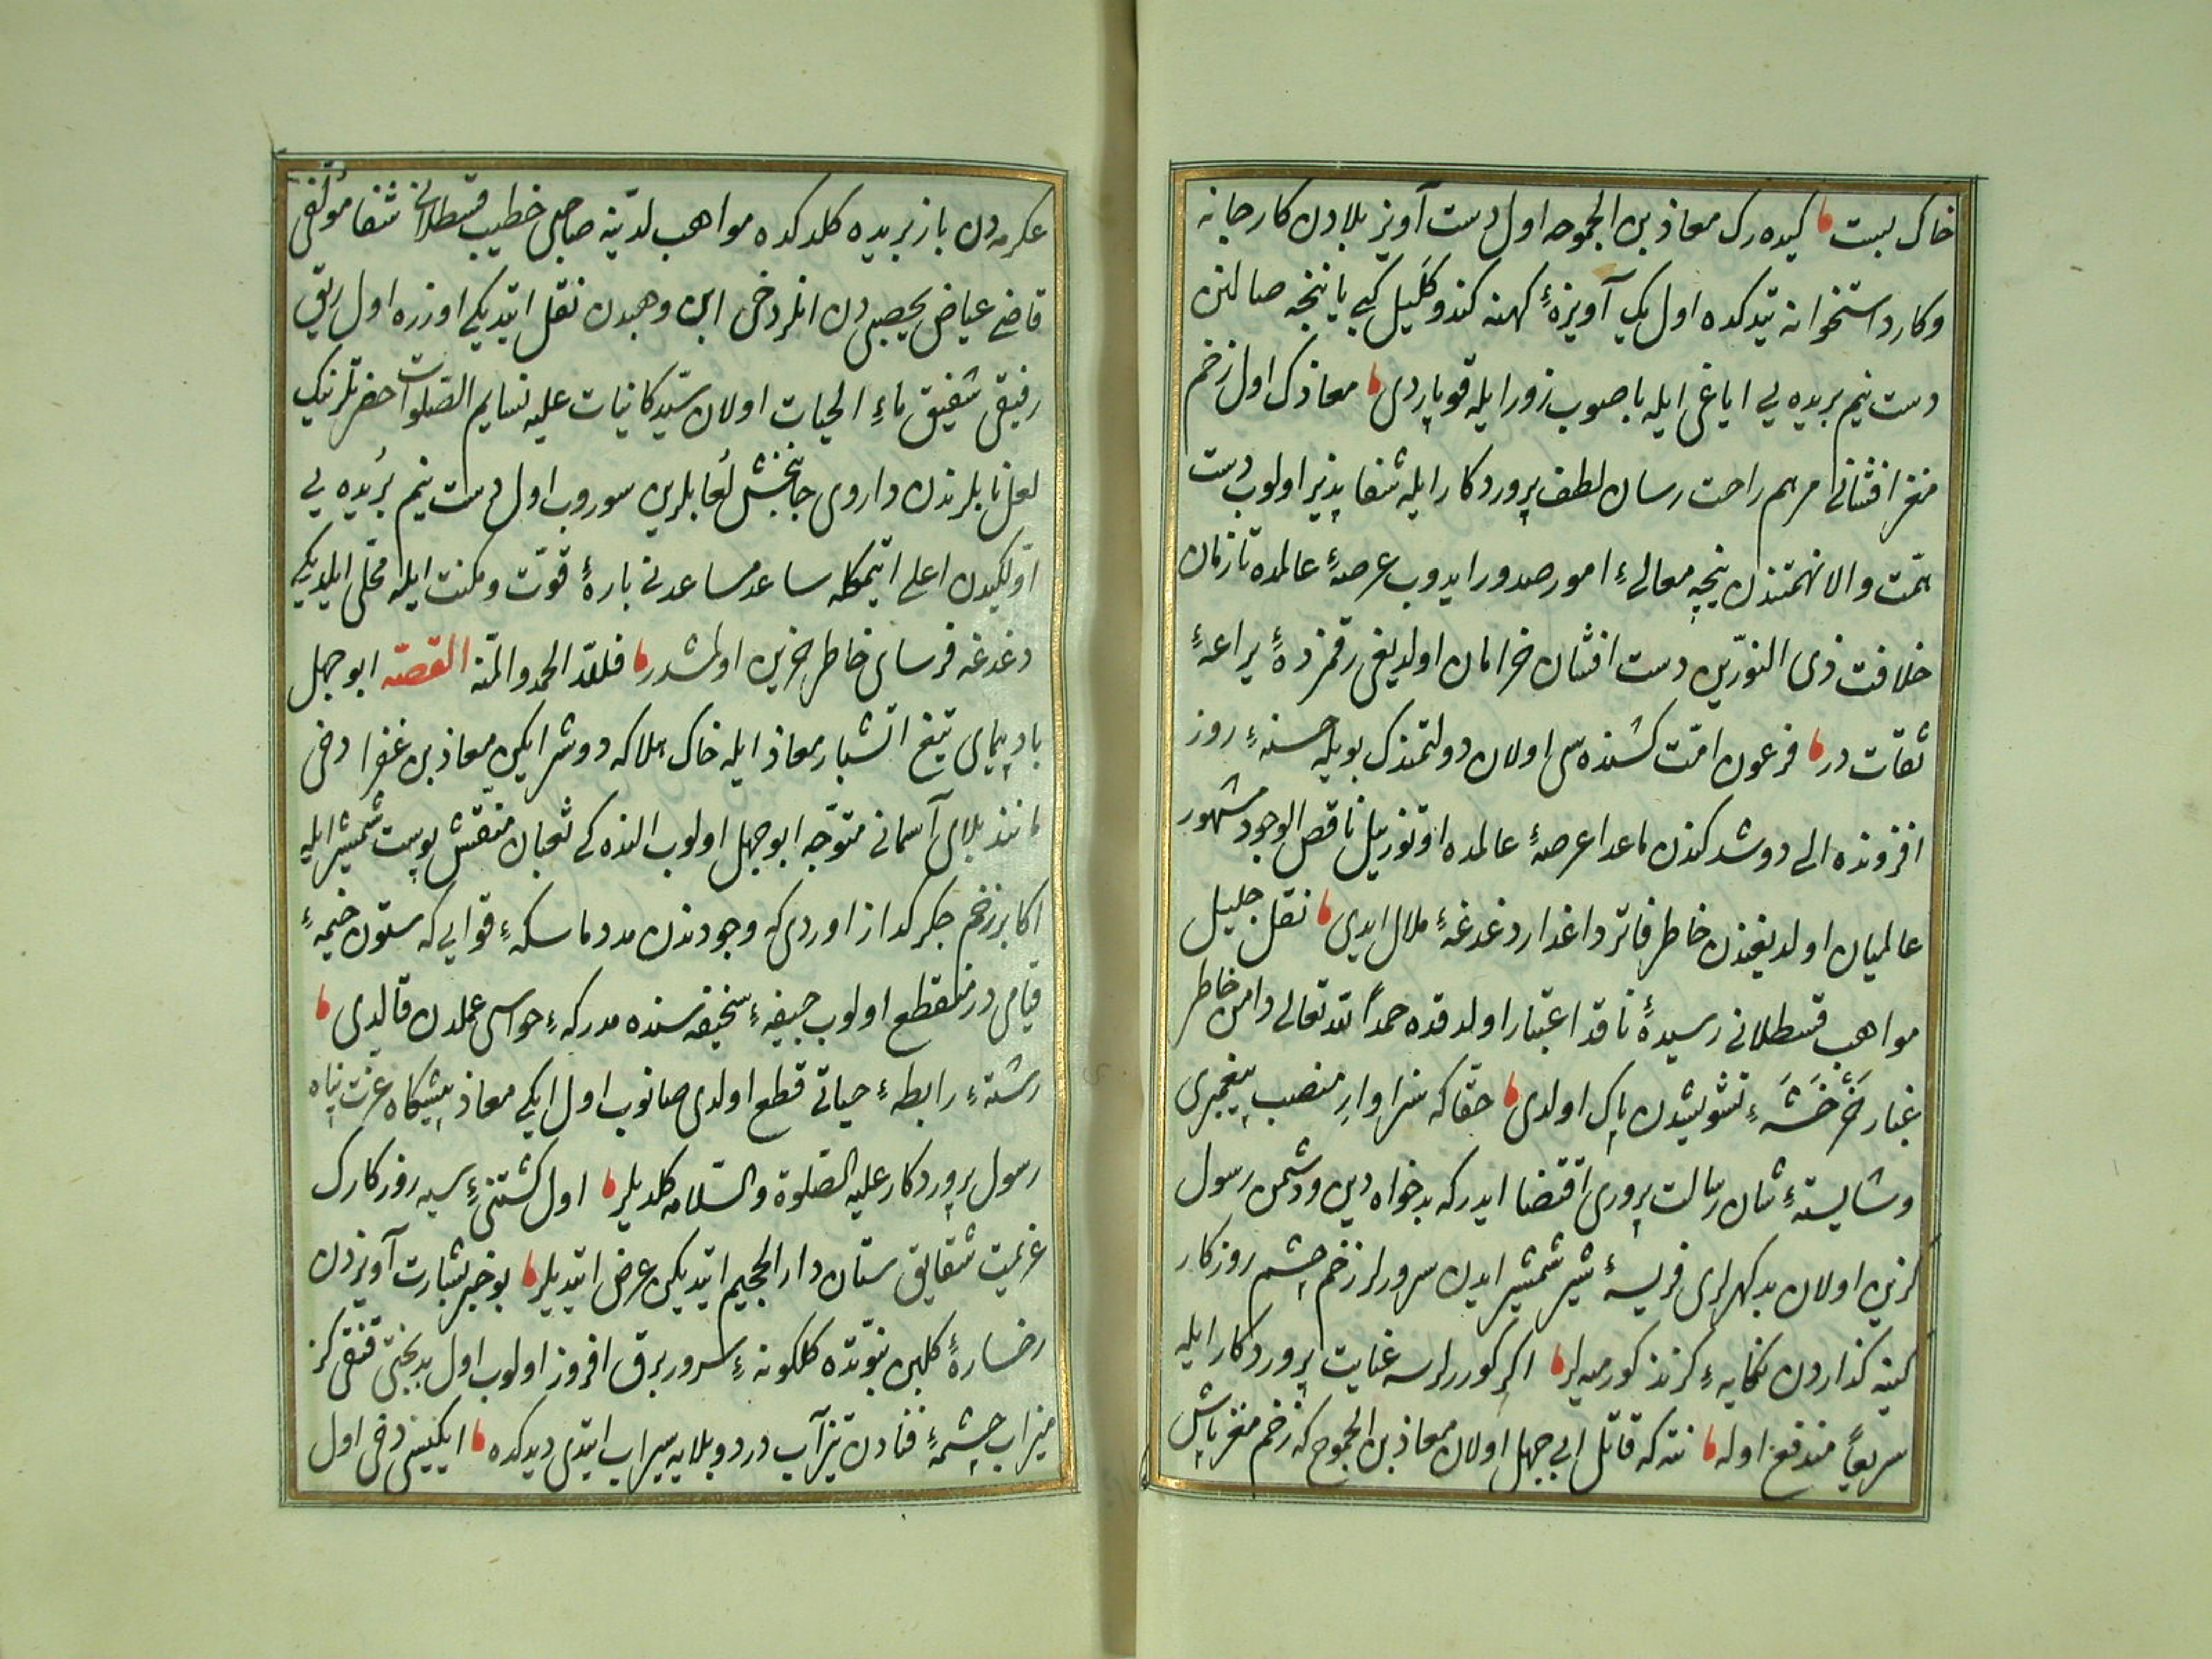 خاك بست كيده رك معاذ بن الجموحه اول دست آويز بلادن كار جانه
وكارد استخوانه يتدكده اول يك آويزۀ كهنه كندو كليل كبي ياننجه صالنن
دست نيم بريده يي اياغى ايله باصوب زور ايله قوپاردى معاذك اول زخم
مغز افشانى مرهم راحت رسان لطف پروردكار ايله شفا پذير اولوب دست
همّت والا نهمتندن نيجه معالیء امور صدور ايدوب عرصۀ عالمده تا زمان
خلافت ذى النوّرين دست افشان خرامان اولديغى رقمزدۀ يراعۀ
ثقات در فرعون امّت كشنده سى اولان دولتمندك بويله حسنۀ روز
افزونده الى دوشدكندن ماعدا عرصۀ عالمده اوتوز ييل ناقص الوجود مشهور
عالميان اولديغندن خاطر فاتر داغدار دغدغۀ ملال ايدى نقل جليل
مواهب قسطلانى رسيدۀ ناقد اعتبار اولدقده حمداً لله تعالى دامن خاطر
غبار خَرْخَشَۀ تشويشدن پاك اولدى حقّا كه سزاوارِ منصب پيغمبرى
وشايستۀ شان رسالت پرورى اقتضا ايدر كه بدخواه دين ودشمن رسول
كزين اولان بدكهرلرى فريسۀ شير شمشير ايدن سرورلر زخم چشم روزكار
كينه كذاردن نكايۀ كزند كورميه لر اكر كوررلرسه عنايت پروردكار ايله
سريعاً مندفع اوله نته كه قاتل ابى جهل اولان معاذ بن الجموح كه زخم مغز پاش
عكرمه دن بازو بريده كلدكده مواهب لدنّيه صاحبى خطيب قسطلانى شفا مؤلفى
قاضى عياض يحصبى دن انلردخى ابن وهبدن نقل ايتديكى اوزره اول ريق
رفيقى شفيق ماء الحيات اولان سيّد كائنات عليه نسايم الصّلوات حضرتلرينك
لعل نابلرندن داروى جانبخش لُعابلرين سوروب اول دست نيم بُريده يي
اوّلكيدن اعلى ايتمكله ساعد مساعدنى يارۀ قوّت ومكنت ايله محلّى ايلديكى
دغدغه فرساى خاطر حزين اولمشدر فللّه الحمد والمنّه القصّه ابو جهل
باد پيماى تيغ آتشبار معاذ ايله خاك هلاكه دوشر ايكن معاذ بن عفرا دخى
مانند بلاى آسمانى متوجّه ابو جهل اولوب الندەكى ثعبان منقّش پوست شمشير ايله
اكا بر زخم جكر كداز اوردى كه وجودندن مدد ماسكۀ قوايى كه ستون خيمۀ
قيامى در منقطع اولوب جيفۀ سخيفه سنده مدركۀ حواسى عملدن قالدى
رشتۀ رابطۀ حياتى قطع اولدى صانوب اول ايكى معاذ پيشكاه عزّت پناه
رسول پروردكار عليه الصّلوة والسّلامه كلديلر اول كشتنىء سيه روزكارك
عزيمت شقايق ستان دار الجحيم ايتديكن عرض ايتديلر بو خبر بشارت آويزدن
رخسارۀ كلبن نبوّتده كلكونۀ سرور برق افروز اولوب اول بدبختى قنقيكز
ميزاب چشمۀ فنادن تيز آب درد وبلايه سيراب ايتدى ديدكده ايكيسى دخى اول